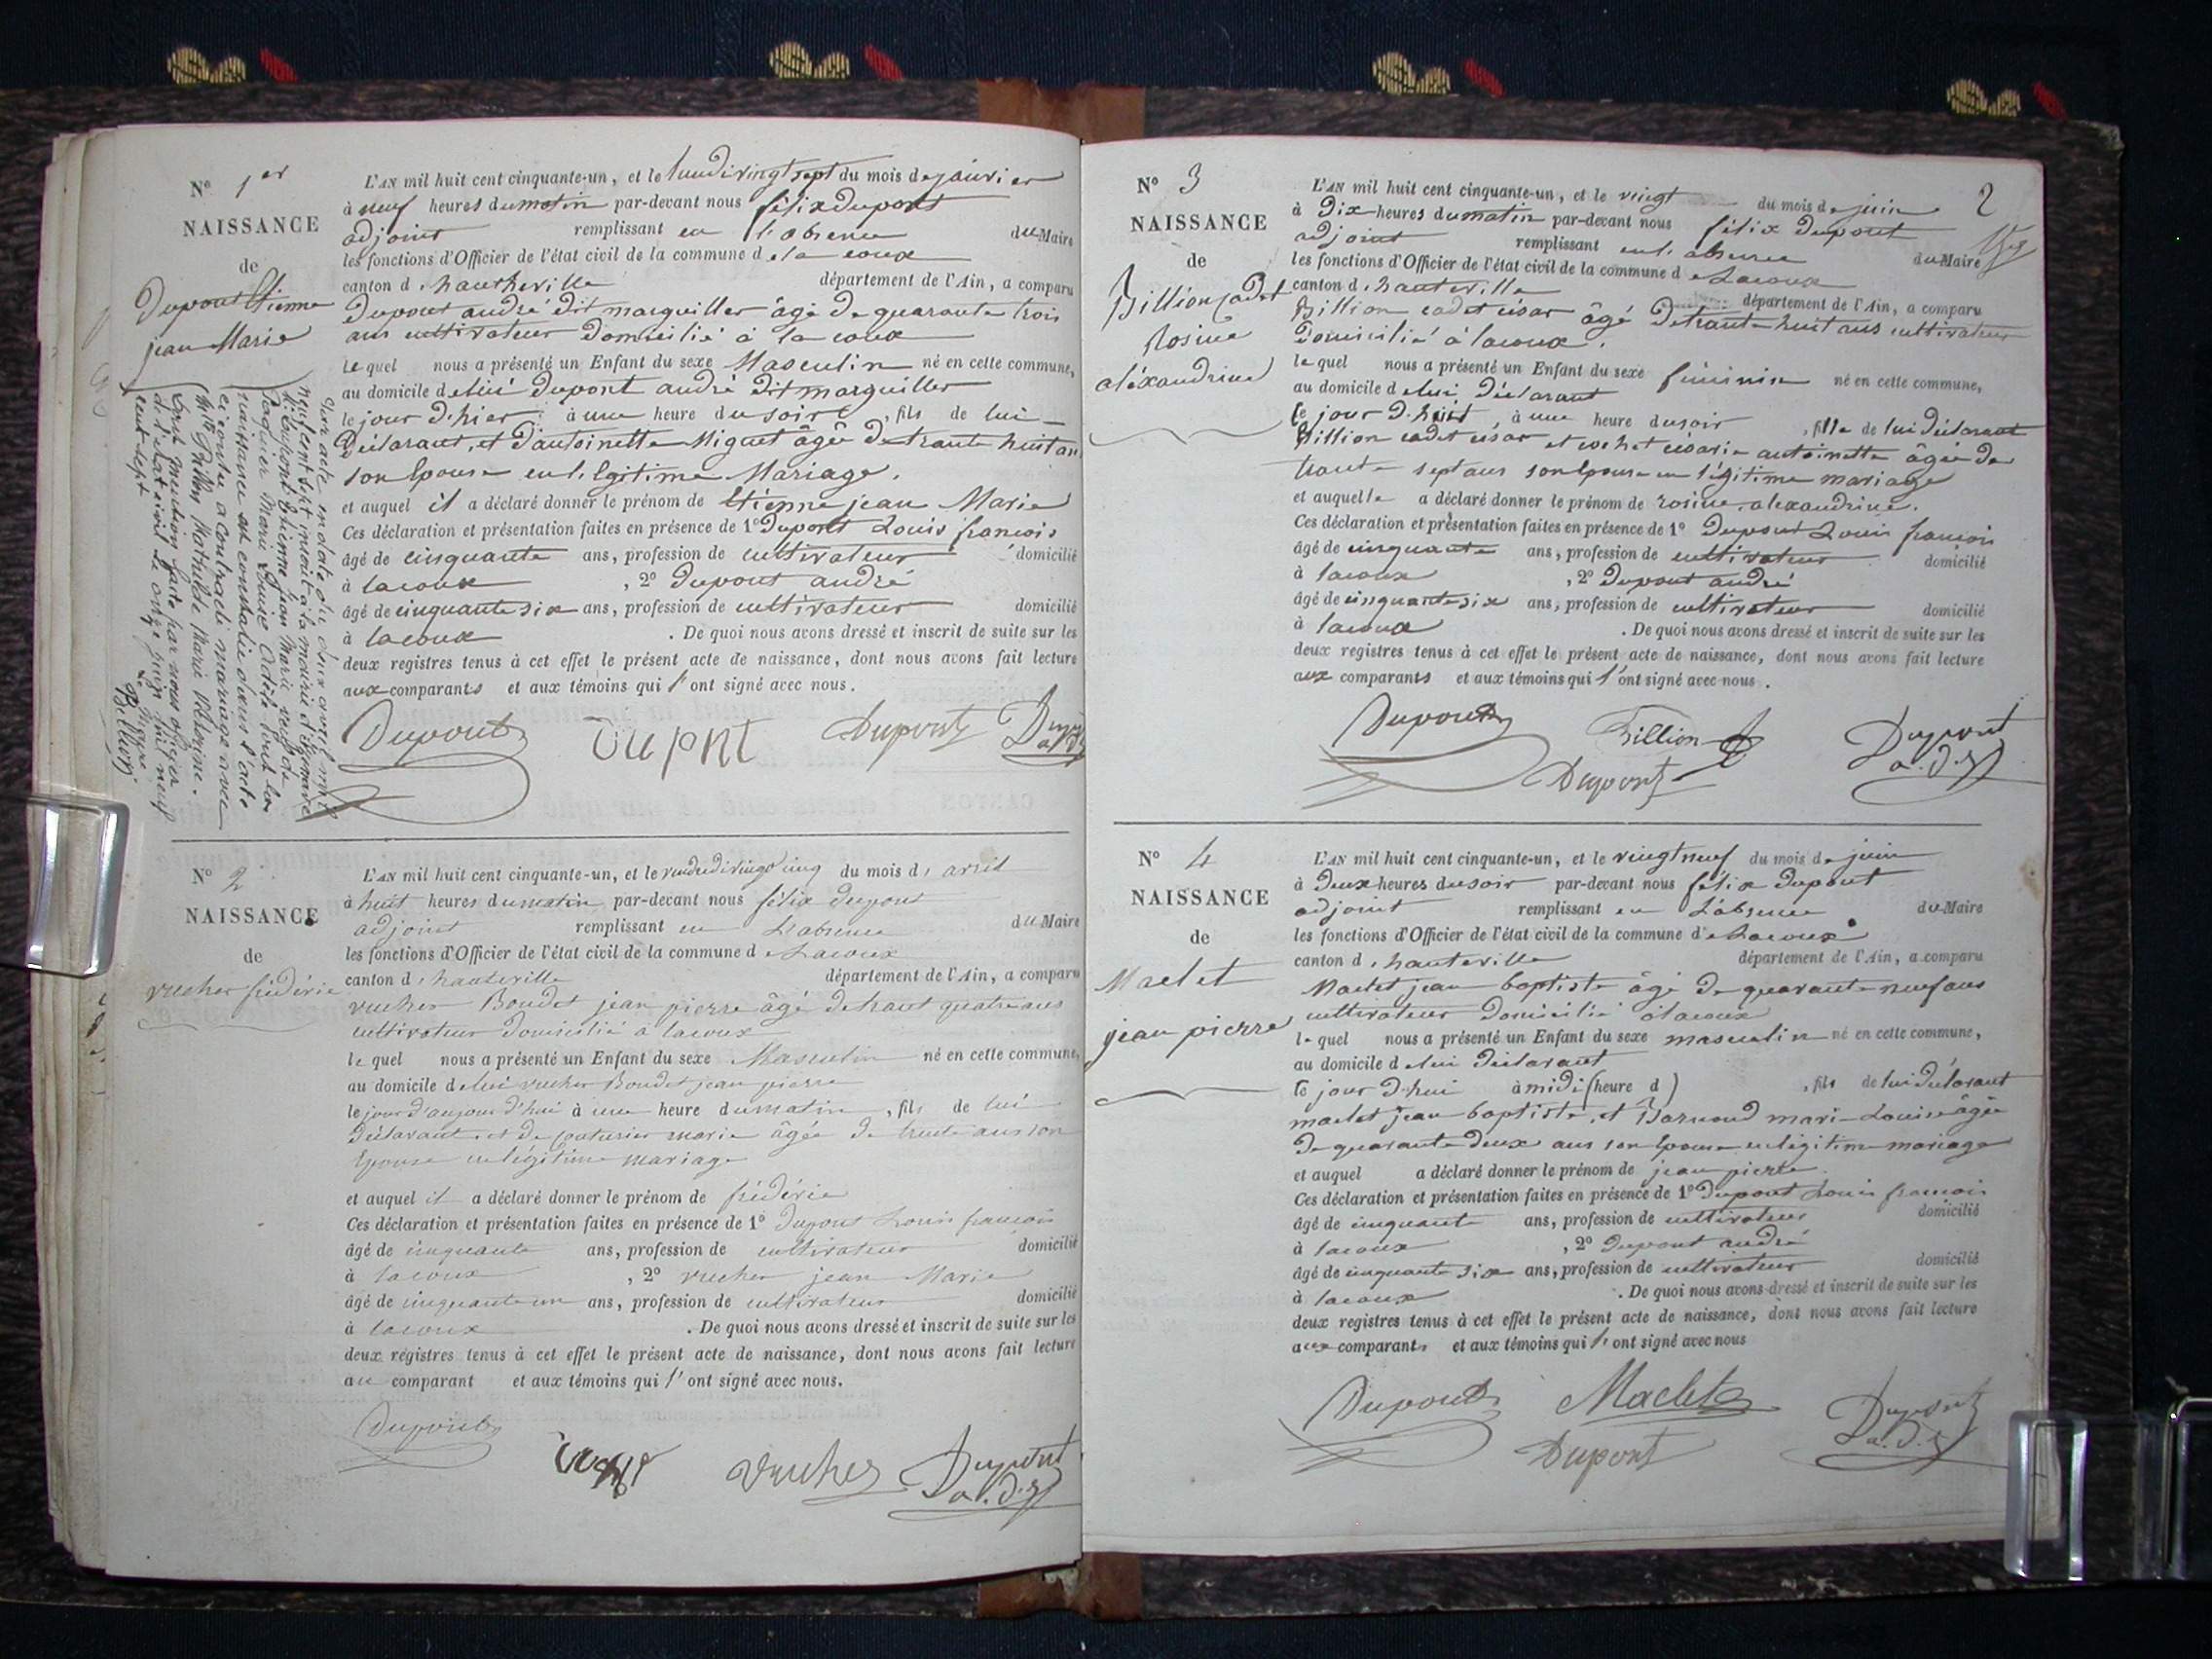 N° 1er
NAISSANCE
de
Dupont Etienne
jean Marie
L'AN mil huit cent cinquante-un, et le lundi vingt sept du mois de janvier
à neuf heures du matin par-devant nous félix dupont
adjoint remplissant en l'absence du Maire
les fonctions d'Officier de l'état civil de la commune d e la coux
canton d e hautheville département de l'Ain, a comparu
Dupont andré dit marguiller âgé de quarante trois
ans cultivateur domicilié à la coux
le quel nous a présenté un Enfant du sexe Masculin né en cette commune,
au domicile de lui dupont andré dit marguiller
le jour d'hier à une heure du soir, fils de lui
Déclarant, et d'antoinette Miguet âgée de trante huit an
son Epouse en légitime Mariage.
et auquel il a déclaré donner le prénom de Etienne jean Marie
Ces déclaration et présentation faites en présence de 1° Dupont Louis francois
âgé de cinquante ans, profession de cultivateur domicilié
à lacoux, 2° dupont andré
âgé de cinquante six ans, profession de cultivateur domicilié
à lacoux. De quoi nous avons dressé et inscrit de suite sur les
deux registres tenus à cet effet le présent acte de naissance, dont nous avons fait lecture
aux comparants et aux témoins qui l'ont signé avec nous.
Dupont Dupont Dupont
Par acte en date du deux avril mil
neuf cent sept inscrit à la mairie d'
Etienne Jean Marie veuf de
Marie Louise Adèle dont la
naissance est constatée dans l'acte
ci contre a contracté mariage avec
Mathilde Marie
dont mention faite par nous officier
de l'état civil le onze juin mil neuf
cent sept
Le Maire
N° 2
NAISSANCE
de
vucher frédéric
L'AN mil huit cent cinquante-un, et le vendredi vingt cinq du mois d'avril
à huit heures du matin par-devant nous félix dupont
adjoint remplissant en l'absence du Maire
les fonctions d'Officier de l'état civil de la commune d e Lacoux
canton d e hauteville département de l'Ain, a comparu
vucher Boudet jean pierre âgé de trant quatre ans
cultivateur domicilié à lacoux
le quel nous a présenté un Enfant du sexe Masculin né en cette commune,
au domicile de lui vucher Boudet jean pierre
le jour d'aujourd'hui à une heure du matin, fils de lui
déclarant, et de couturier marie âgée de trente ans son
Epouse en légitime mariage
et auquel il a déclaré donner le prénom de frédéric
Ces déclaration et présentation faites en présence de 1° Dupont Louis francois
âgé de cinquante ans, profession de cultivateur domicilié
à lacoux, 2° vucher jean Marie
âgé de cinquante un ans, profession de cultivateur domicilié
à lacoux. De quoi nous avons dressé et inscrit de suite sur les
deux registres tenus à cet effet le présent acte de naissance, dont nous avons fait lecture
au comparant et aux témoins qui l'ont signé avec nous.
Dupont vucher Dupont
2
N° 3
NAISSANCE
de
Billion cadet
Rosine
aléxandrine
L'AN mil huit cent cinquante-un, et le vingt du mois de juin
à Dix heures du matin par-devant nous félix Dupont
adjoint remplissant en l'absence du Maire
les fonctions d'Officier de l'état civil de la commune d e Lacoux
canton d e hauteville département de l'Ain, a comparu
Billion cadet césar âgé de trante huit ans cultivateur
domicilié à lacoux.
le quel nous a présenté un Enfant du sexe féminin né en cette commune,
au domicile de lui déclarant
le jour d'hier, à une heure du soir, fille de lui déclarant
Billion cadet césar et cochet césarie antoinette âgée de
trante sept ans son Epouse en légitime mariage
et auquelle a déclaré donner le prénom de rosine aléxandrine.
Ces déclaration et présentation faites en présence de 1° Dupont Louis francois
âgé de cinquante ans, profession de cultivateur domicilié
à lacoux, 2° Dupont andré
âgé de cinquante six ans, profession de cultivateur domicilié
à lacoux. De quoi nous avons dressé et inscrit de suite sur les
deux registres tenus à cet effet le présent acte de naissance, dont nous avons fait lecture
aux comparants et aux témoins qui l'ont signé avec nous.
Dupont Billion Dupont
Dupont
N° 4
NAISSANCE
de
Maclet
jean pierre
L'AN mil huit cent cinquante-un, et le vingt neuf du mois de juin
à deux heures du soir par-devant nous félix dupont
adjoint remplissant en L'absence du Maire
les fonctions d'Officier de l'état civil de la commune d e Lacoux
canton d e hauteville département de l'Ain, a comparu
Maclet jean baptiste âgé de quarante neuf ans
cultivateur domicilié à lacoux
le quel nous a présenté un Enfant du sexe masculin né en cette commune,
au domicile de lui déclarant
le jour d'hui à midi (heure d ), fils de lui déclarant
maclet jean baptiste, et Barnoud mari Louise âgée
de quarante deux ans son Epouse en légitime mariage
et auquel a déclaré donner le prénom de jean pierre
Ces déclaration et présentation faites en présence de 1° Dupont Louis francois
âgé de cinquante ans, profession de cultivateur domicilié
à lacoux, 2° Dupont andré
âgé de cinquante six ans, profession de cultivateur domicilié
à lacoux. De quoi nous avons dressé et inscrit de suite sur les
deux registres tenus à cet effet le présent acte de naissance, dont nous avons fait lecture
aux comparants et aux témoins qui l'ont signé avec nous
Dupont Maclet Dupont
Dupont